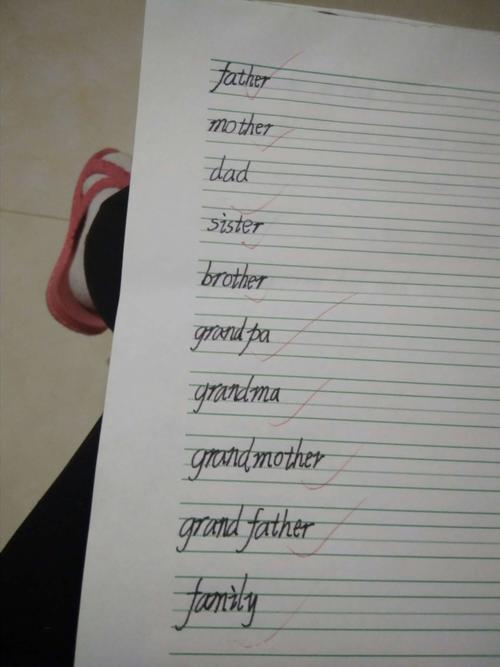 father
mother
dad
sister
brother
grandpa
grandma
grandmother
grand father
family